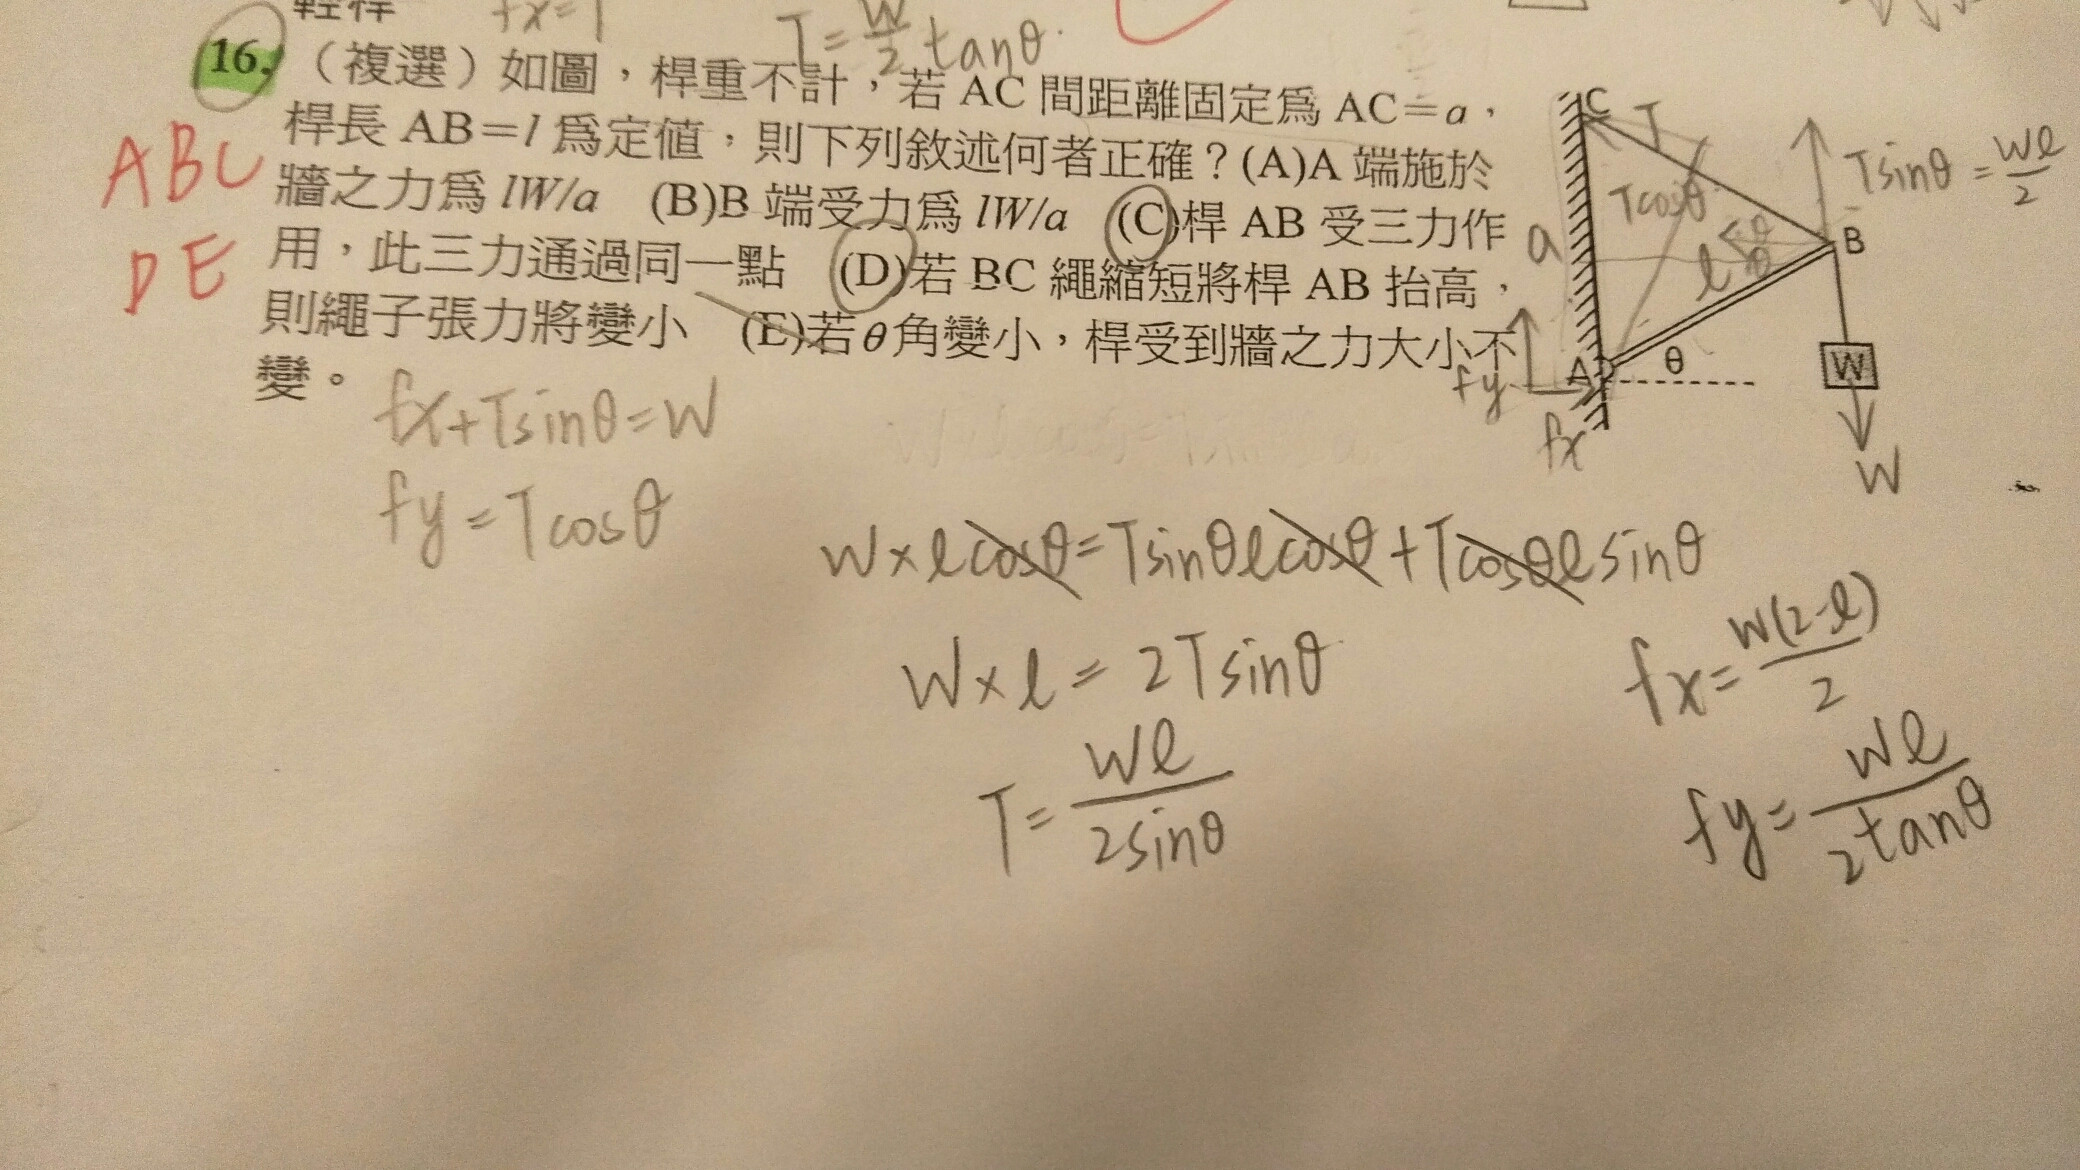 輕桿
fx=T
T=W/2 tanθ.
16.（複選）如圖，桿重不計，若 AC 間距離固定爲 AC=a，
桿長 AB=l 爲定值，則下列敘述何者正確？(A)A 端施於
牆之力爲 lW/a (B)B 端受力爲 lW/a (C)桿 AB 受三力作
用，此三力通過同一點 (D)若 BC 繩縮短將桿 AB 抬高，
則繩子張力將變小 (E)若θ角變小，桿受到牆之力大小不
變。
ABC
DE
C
T
Tcosθ
Tsinθ=Wl/2
a
l
θ
θ
B
A
θ
W
fy
fx
W
fx+Tsinθ=W
fy=Tcosθ
W×lcosθ=Tsinθlcosθ+Tcosθlsinθ
W×l=2Tsinθ
T=Wl/2sinθ
fx=W(2-l)/2
fy=Wl/2tanθ